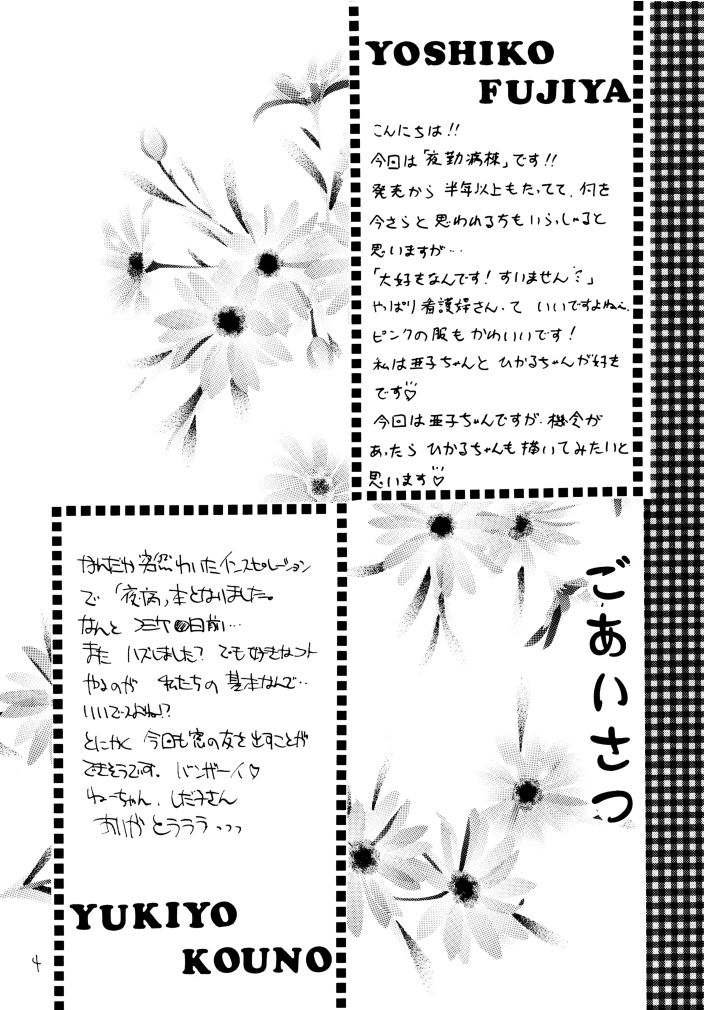 YOSHIKO
FUJIYA
こんにちは!!
今回は「夜勤病棟」です!!
発売から 半年以上もたってて、何を
今さらと 思われる方もいらっしゃると
思いますが…
「大好きなんです! すいません〜」
やっぱり 看護婦さんって いいですよねぇ
ピンクの服も かわいいです!
私は亜子ちゃんと ひかるちゃんが好き
です♡
今回は亜子ちゃんですが、機会が
あったら ひかるちゃんも 描いてみたいと
思います♡
ごあいさつ
なんだか突然わいたインスピレーション
で「夜病」本となりました。
なんと コミケ 日前…
また ハズしました? でも好きなコト
やるのが 私たちの 基本なんで‥
いいですよね!?
とにかく 今回も窓の友を出すことが
できそうです。バンザーイ♡
ねーちゃん、しだ子さん
ありがとうううっっ
YUKIYO
KOUNO
4